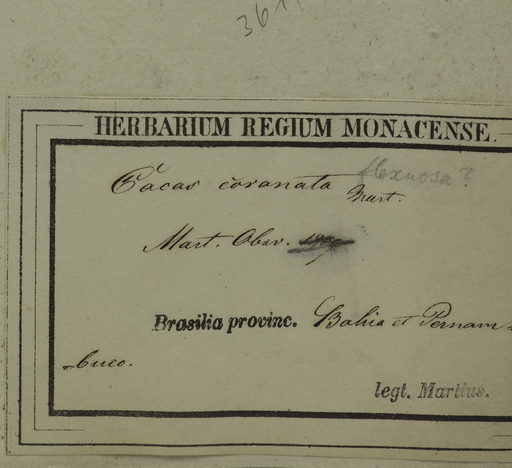 HERBARIUM REGIUM MONACENSE.
flexuosa?
Cocos coronata Mart.
Mart. Obsv.
Brasilia provinc. Bahia et Pernam-
buco.
legt. Martius.